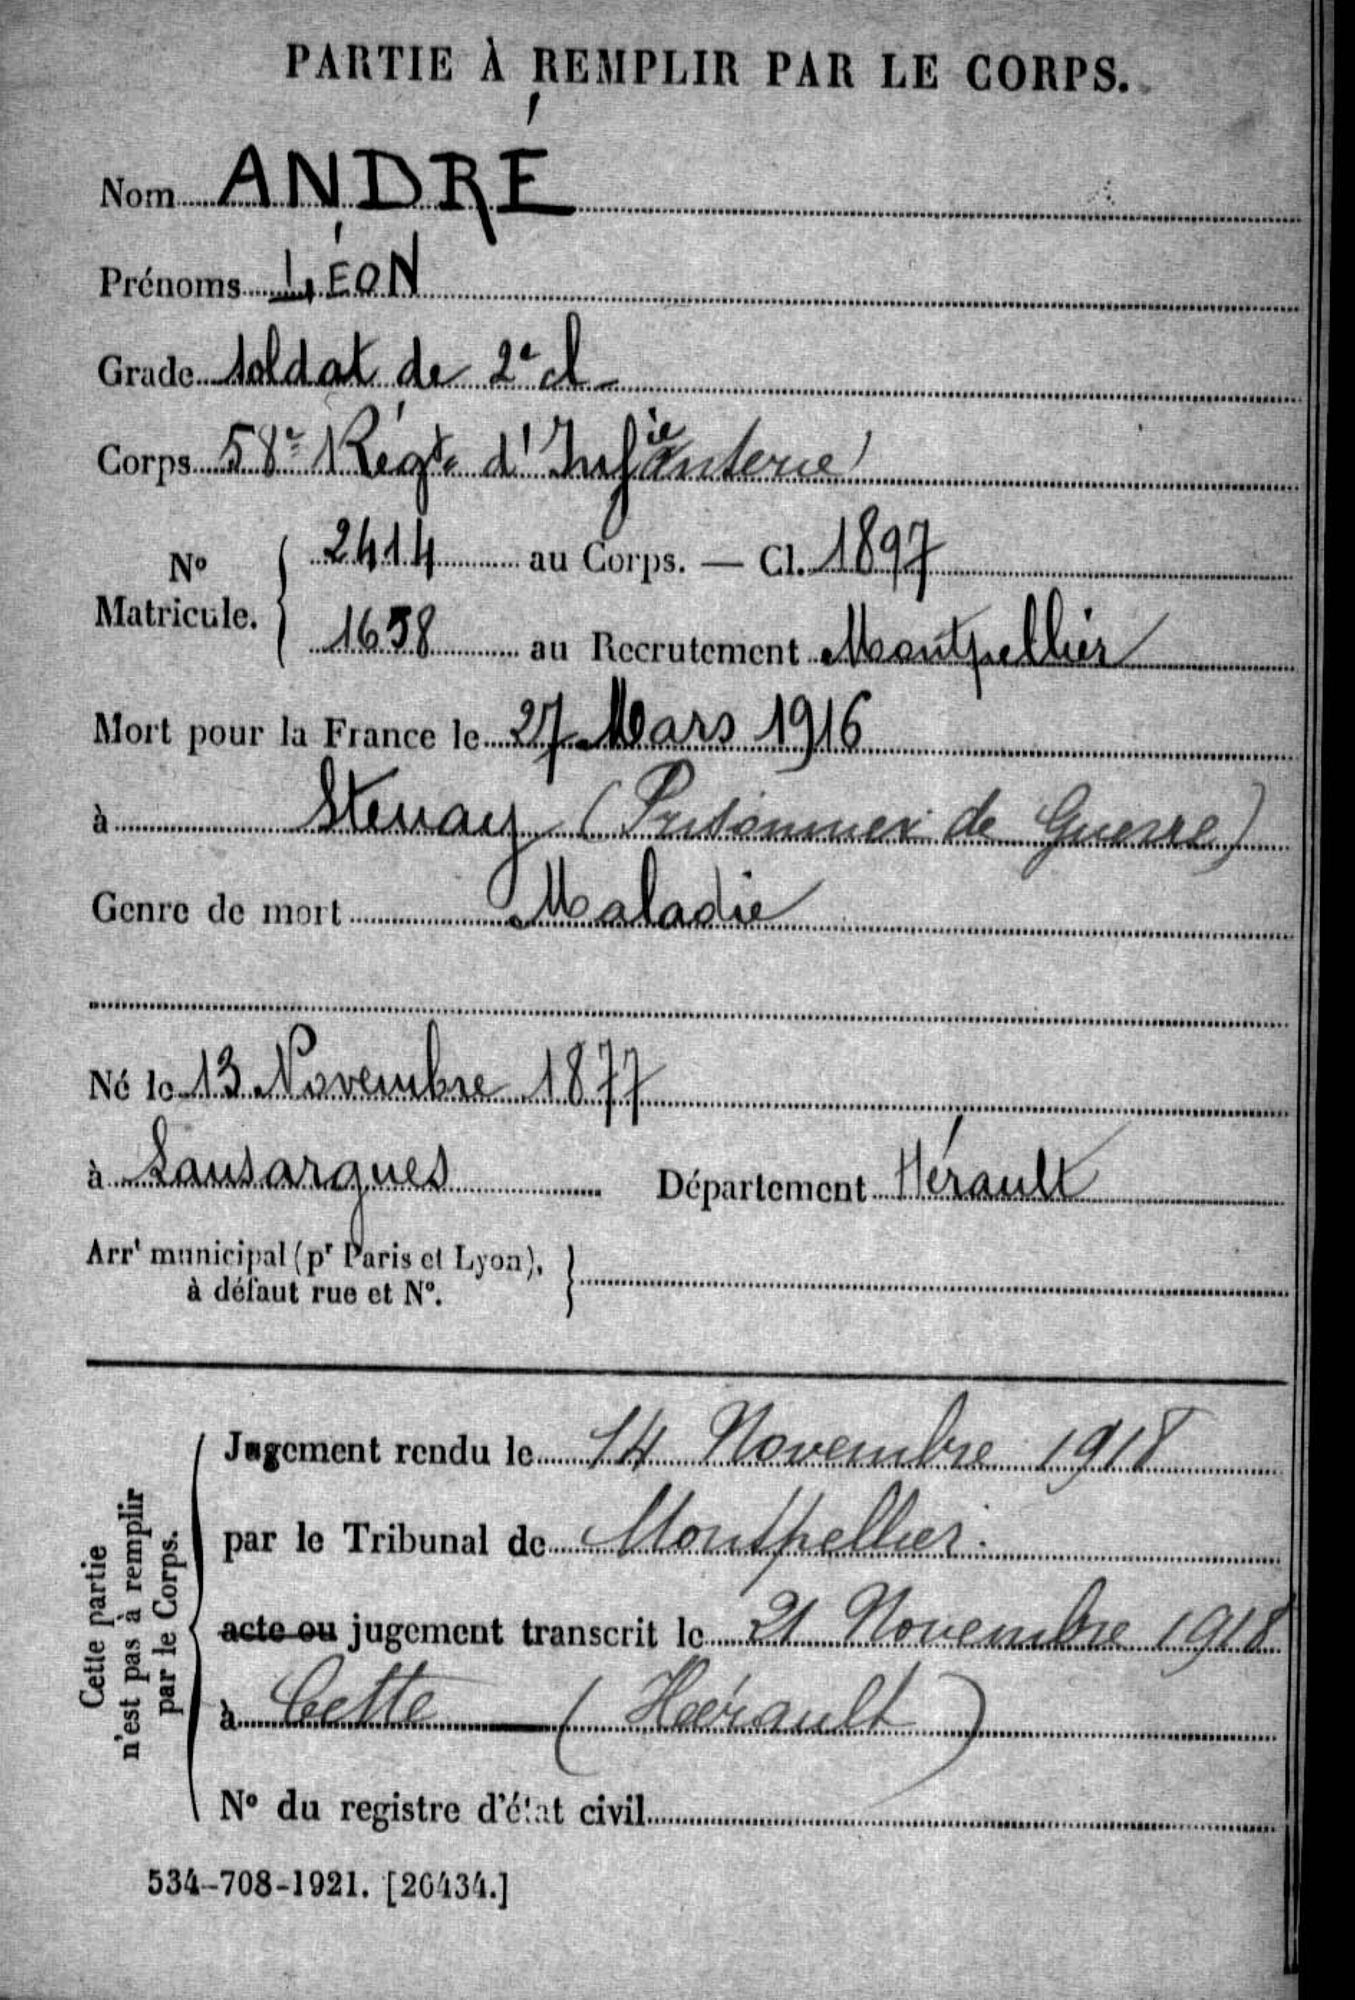 PARTIE À REMPLIR PAR LE CORPS.
Nom ANDRÉ
Prénoms LÉON
Grade soldat de 2e cl
Corps 58e Régt d'Infanterie
No Matricule. 2414 au Corps. — Cl. 1897
1658 au Recrutement Montpellier
Mort pour la France le 27 Mars 1916
à Stenay (Prisonnier de Guerre)
Genre de mort Maladie
Né le 13 Novembre 1877
à Lansargues Département Hérault
Arrt municipal (pr Paris et Lyon),
à défaut rue et No.
Cette partie
n'est pas à remplir
par le Corps.
Jugement rendu le 14 Novembre 1918
par le Tribunal de Montpellier.
acte ou jugement transcrit le 21 Novembre 1918
à Cette (Hérault)
No du registre d'état civil
534-708-1921. [26434.]